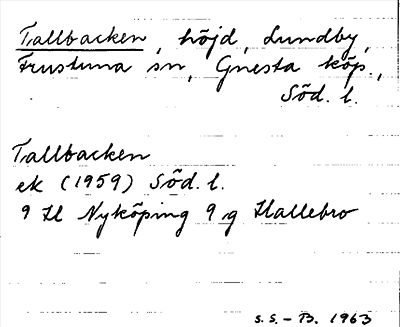 Tallbacken, höjd, Lundby,
Frustuna sn, Gnesta köp.,
Söd. l.
Tallbacken
ek (1959) Söd. l.
9 H Nyköping 9 g Hallebro
S.S. – B. 1963